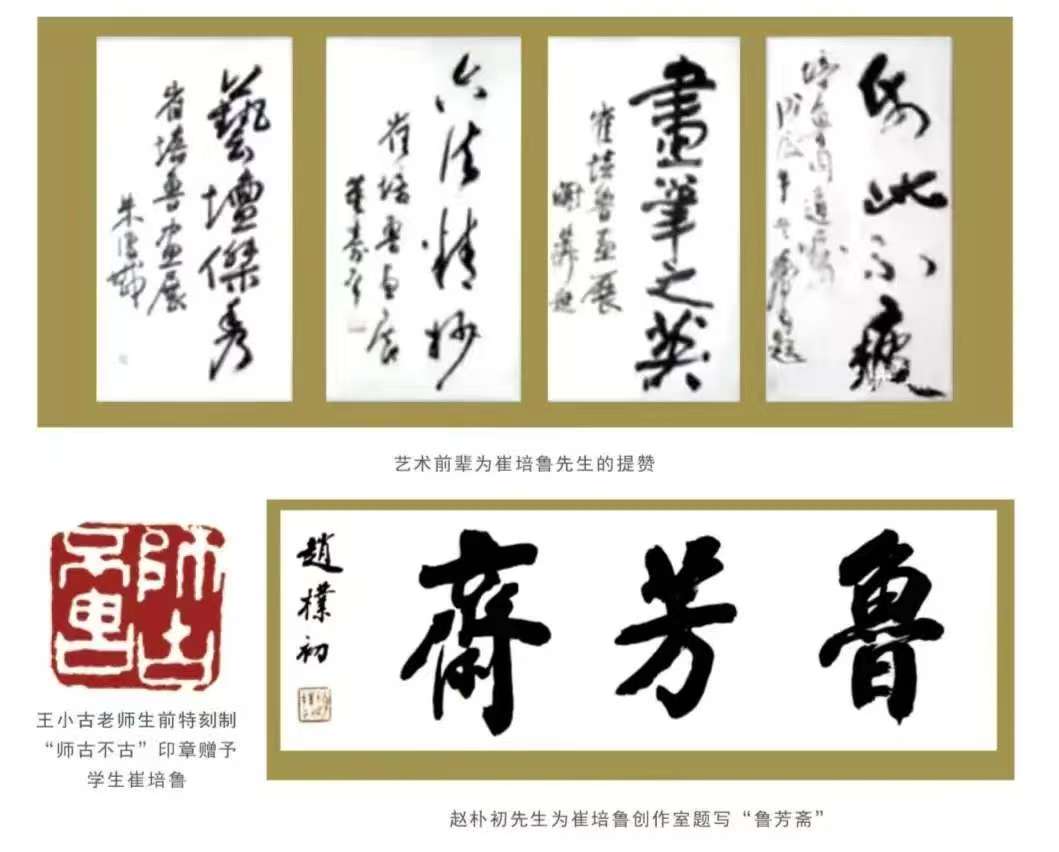 藝壇傑秀
崔培魯畫展
六法精妙
崔培魯畫展
董壽平
畫筆之英
崔培魯畫展
乐此不疲
艺术前辈为崔培鲁先生的提赞
師古
王小古老师生前特刻制
“师古不古”印章赠予
学生崔培鲁
魯芳齋
趙樸初
赵朴初先生为崔培鲁创作室题写“鲁芳斋”